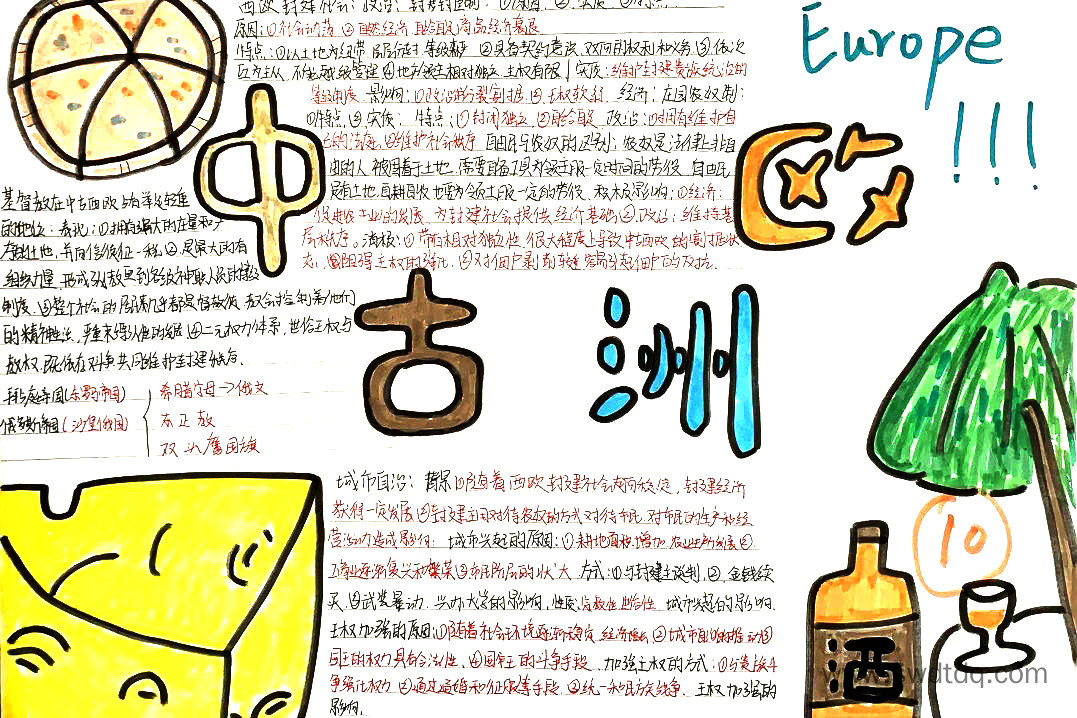 Europe
!!!
中古欧洲
西欧封建社会：政治：封君封臣制：①原因，②实质，③特点。
原因：①社会动荡 ②自然经济 ③商品经济衰退
特点：①以土地为纽带 层层分封 等级森严 ②具有契约意识 双向的权利和义务 ③依次
互为主从，不能越级管理 ④地方领主相对独立 王权有限 实质：维护封建贵族统治的
等级制度 影响：①政治的分裂割据 ②王权软弱 经济：庄园农奴制：
①特点，②实质： 特点：①封闭独立 ②自给自足 政治：①拥有维护自
己的法庭，②维护社会秩序 自由民与农奴的区别：农奴是法律上非自
由的人 被固着于土地，需要自备工具为领主服一定时间的劳役
是自土地 也要为领主服一定的劳役 积极影响：①经济：
促进农业的发展 为封建社会提供经济基础 ②政治：维持基
层秩序。消极：①带有相对独立性 很大程度上导致中古西欧的割据状
态，②阻碍王权的强化，③对佃户剥削 容易引起佃户的反抗
基督教在中古西欧占有举足轻重
的地位：表现：①拥有庞大的庄园和
大片土地，并向信徒征一税，②是最大的有
组织力量，形成从教皇到 的等级
制度，③整个社会的居民几乎都是信教徒 教会控制着他们
的精神生活，④二元权力体系，世俗王权与
教权 既依存对争共同维护封建秩序.
拜占庭帝国(东罗马帝国)
俄罗斯帝国(沙皇俄国)
希腊字母→俄文
东正教
双头鹰国旗
城市自治： 背景①随着西欧封建社会的稳定，封建经济
获得一定发展 ②封建主用对待农奴的方式对待市民 对市民的生产和经
营活动造成影响. 城市兴起的原因：①耕地面积增加 农业 发展 ②
工商业逐渐复兴和繁荣 ③市民阶层的壮大 方式：①与封建主谈判，②金钱赎
买，③武装暴动. 兴办大学的影响，性质 城市兴起的影响.
王权加强的原因：①随着社会环境逐渐稳定，经济 ②城市的推动 ③
国王的权力具有合法性，④国王的斗争手段 加强王权的方式：①与贵族斗
争强化权力 ②通过婚和征服等手段 ③统一和民族战争. 王权加强的
影响.
10
酒